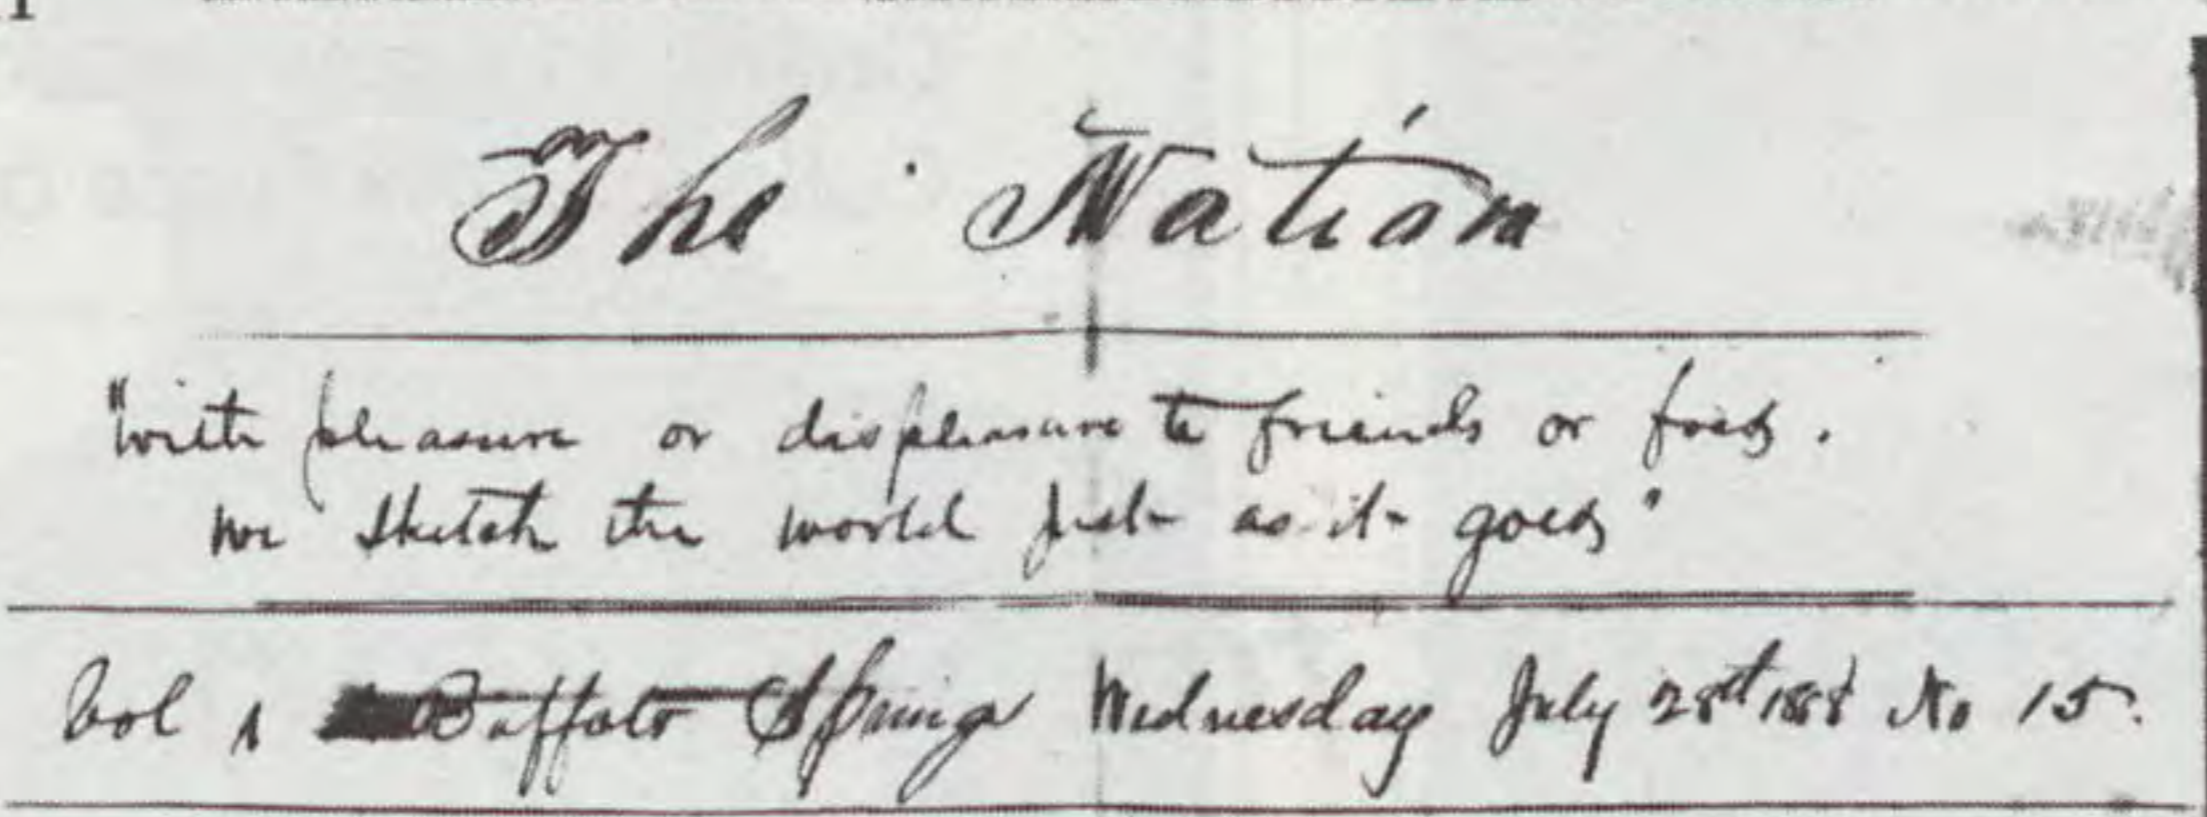 The Nation
"With pleasure or displeasure to friends or foes.
we sketch the world just as it goes"
Vol 1 Buffalo Springs Wednesday July 28th 1888 No 15.